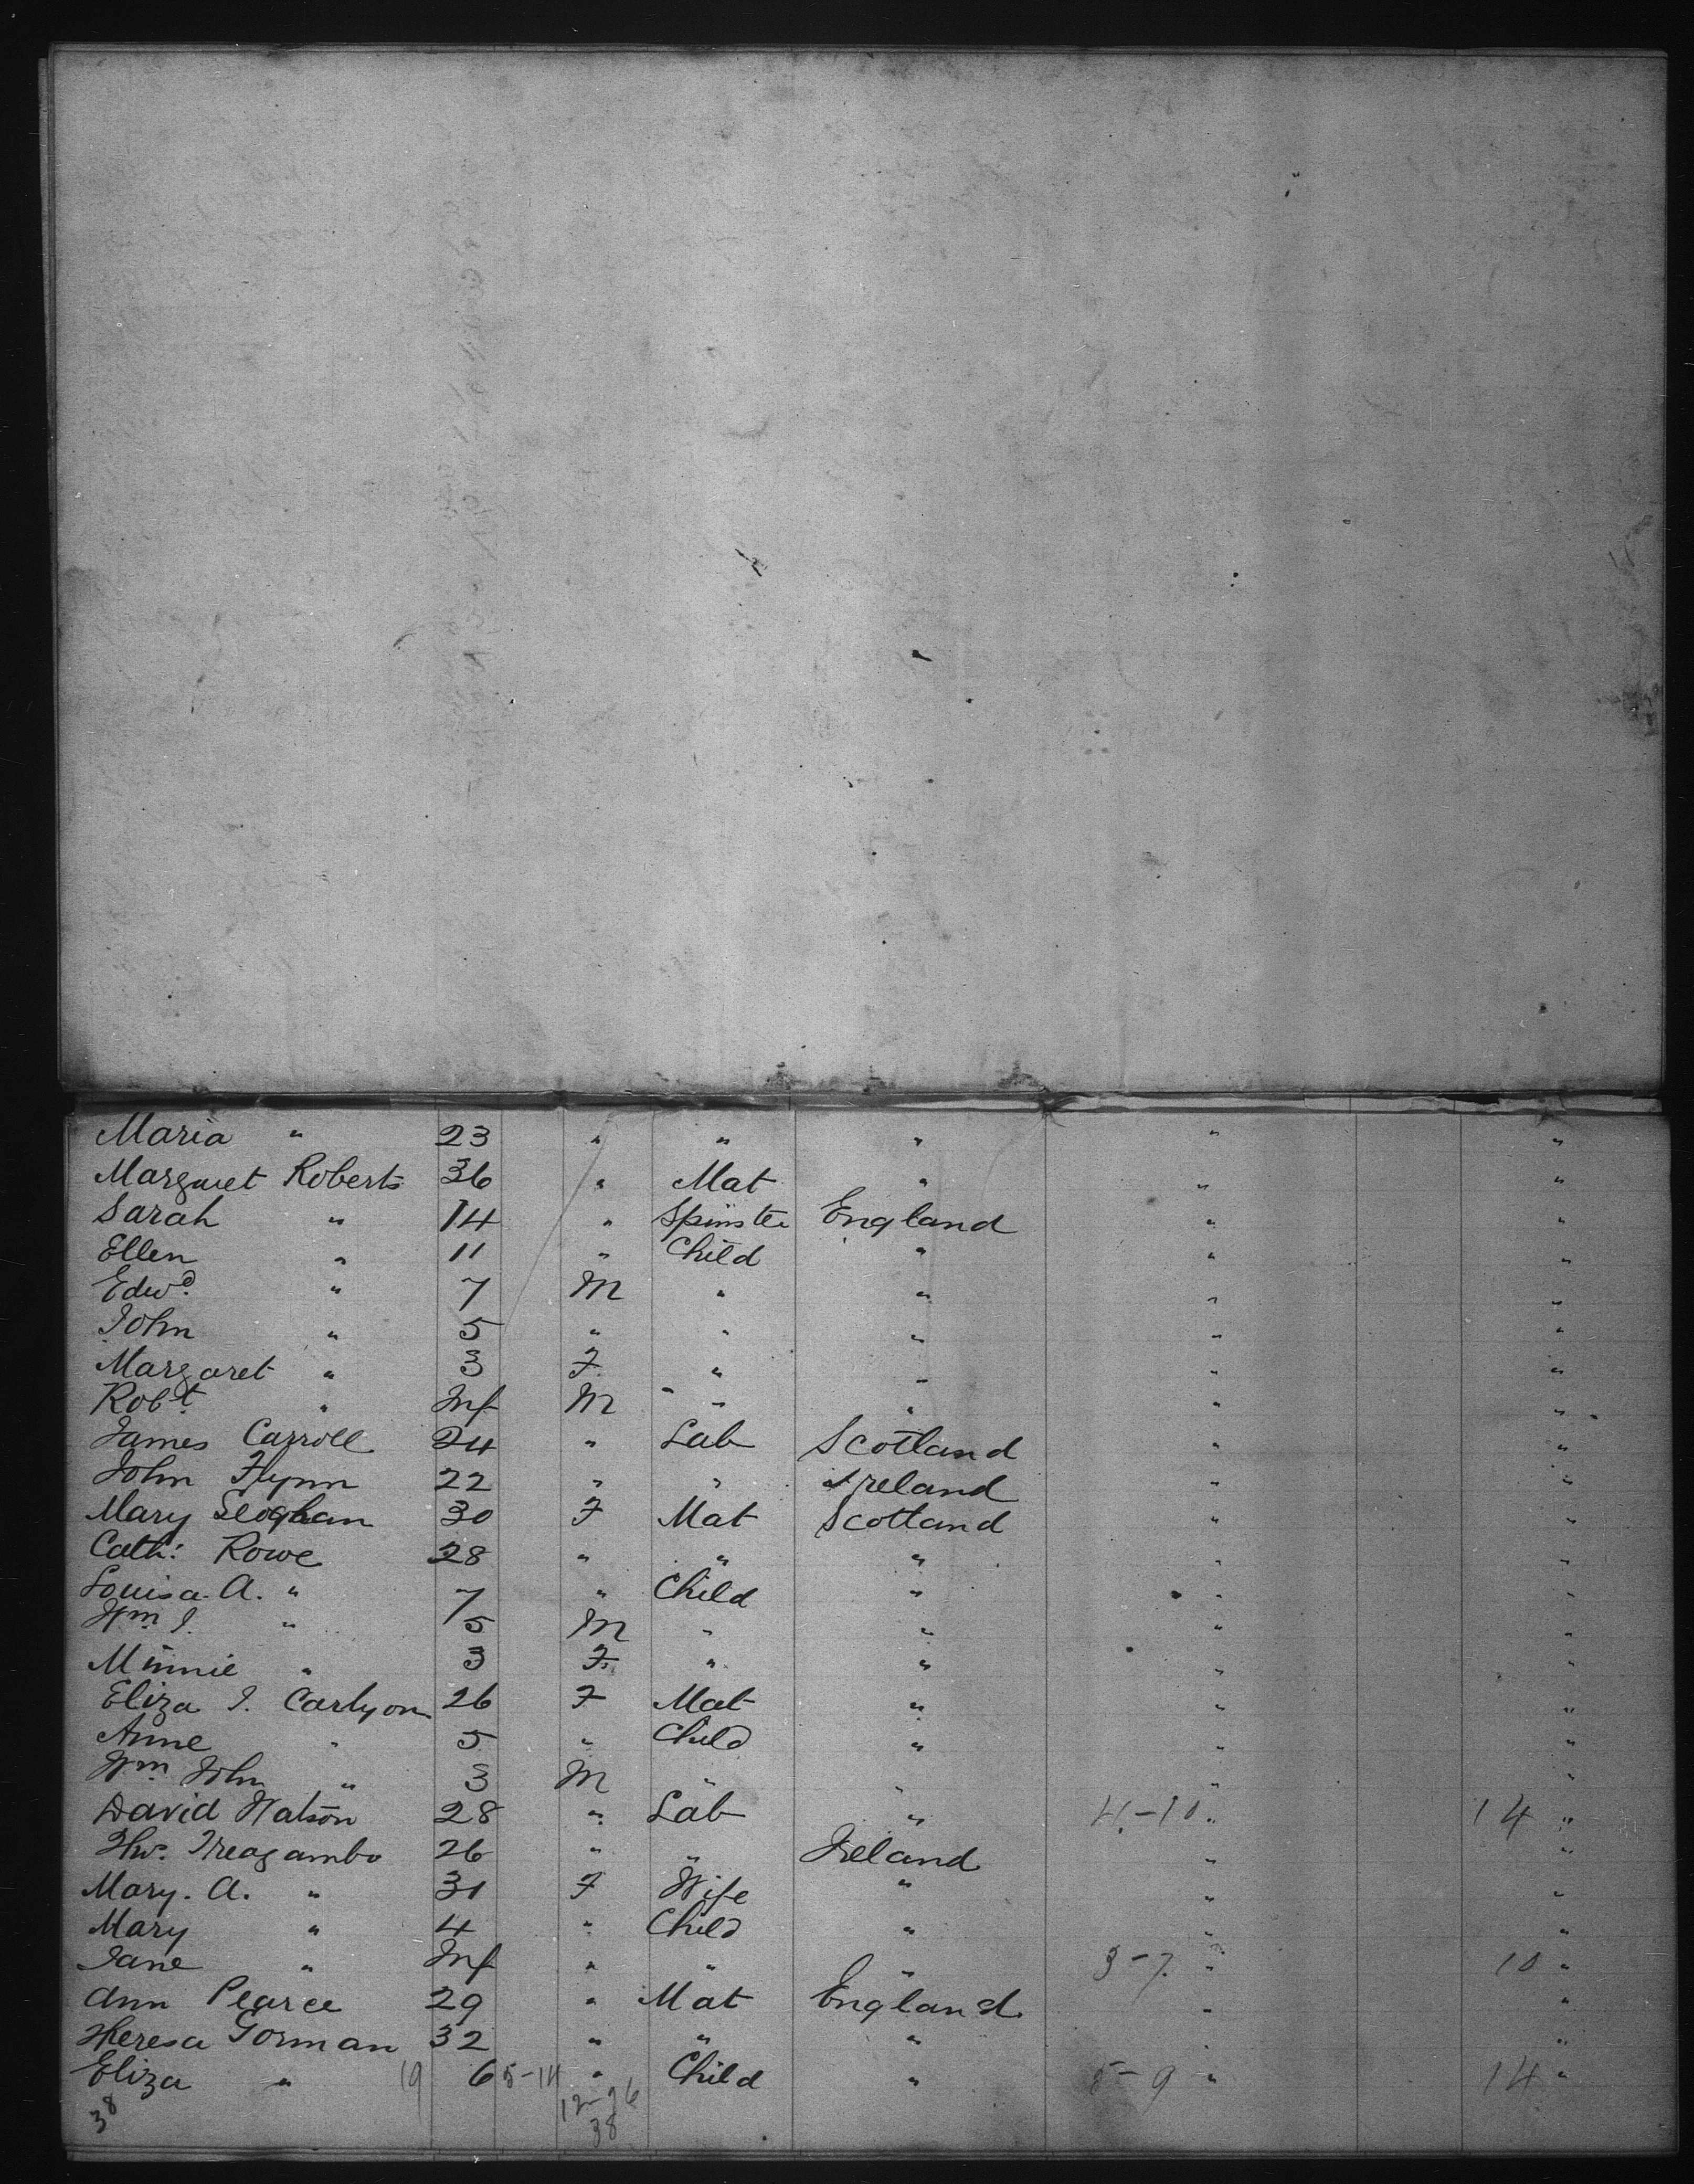 Maria " 23 " " " " "
Margaret Roberts 36 " Mat " " "
Sarah " 14 " Spinster England " "
Ellen " 11 " Child " " "
Edwd " 7 M " " " "
John " 5 " " " " "
Margaret " 3 F " " " "
Robt " Inf M " " " "
James Carroll 24 " Lab Scotland " "
John Flynn 22 " " Ireland " "
Mary 30 F Mat Scotland " "
Cath: Rowe 28 " " " " "
Louisa A. " 7 " Child " " "
Wm J. " 5 M " " " "
Minnie " 3 F " " " "
Eliza J. Carlyon 26 F Mat " " "
Anne " 5 " Child " " "
Wm John " 3 M " " " "
David Watson 28 " Lab " 4-10 " 14 "
Thos. Treagambo 26 " " Ireland " "
Mary. A. " 31 F Wife " " "
Mary " 4 " Child " " "
Jane " Inf " " " 3-7. " 10 "
Ann Pearce 29 " Mat England " "
Theresa Gorman 32 " " " " "
Eliza " 19 6 5-14 " Child " 5-9 " 14 "
38 12-26
38